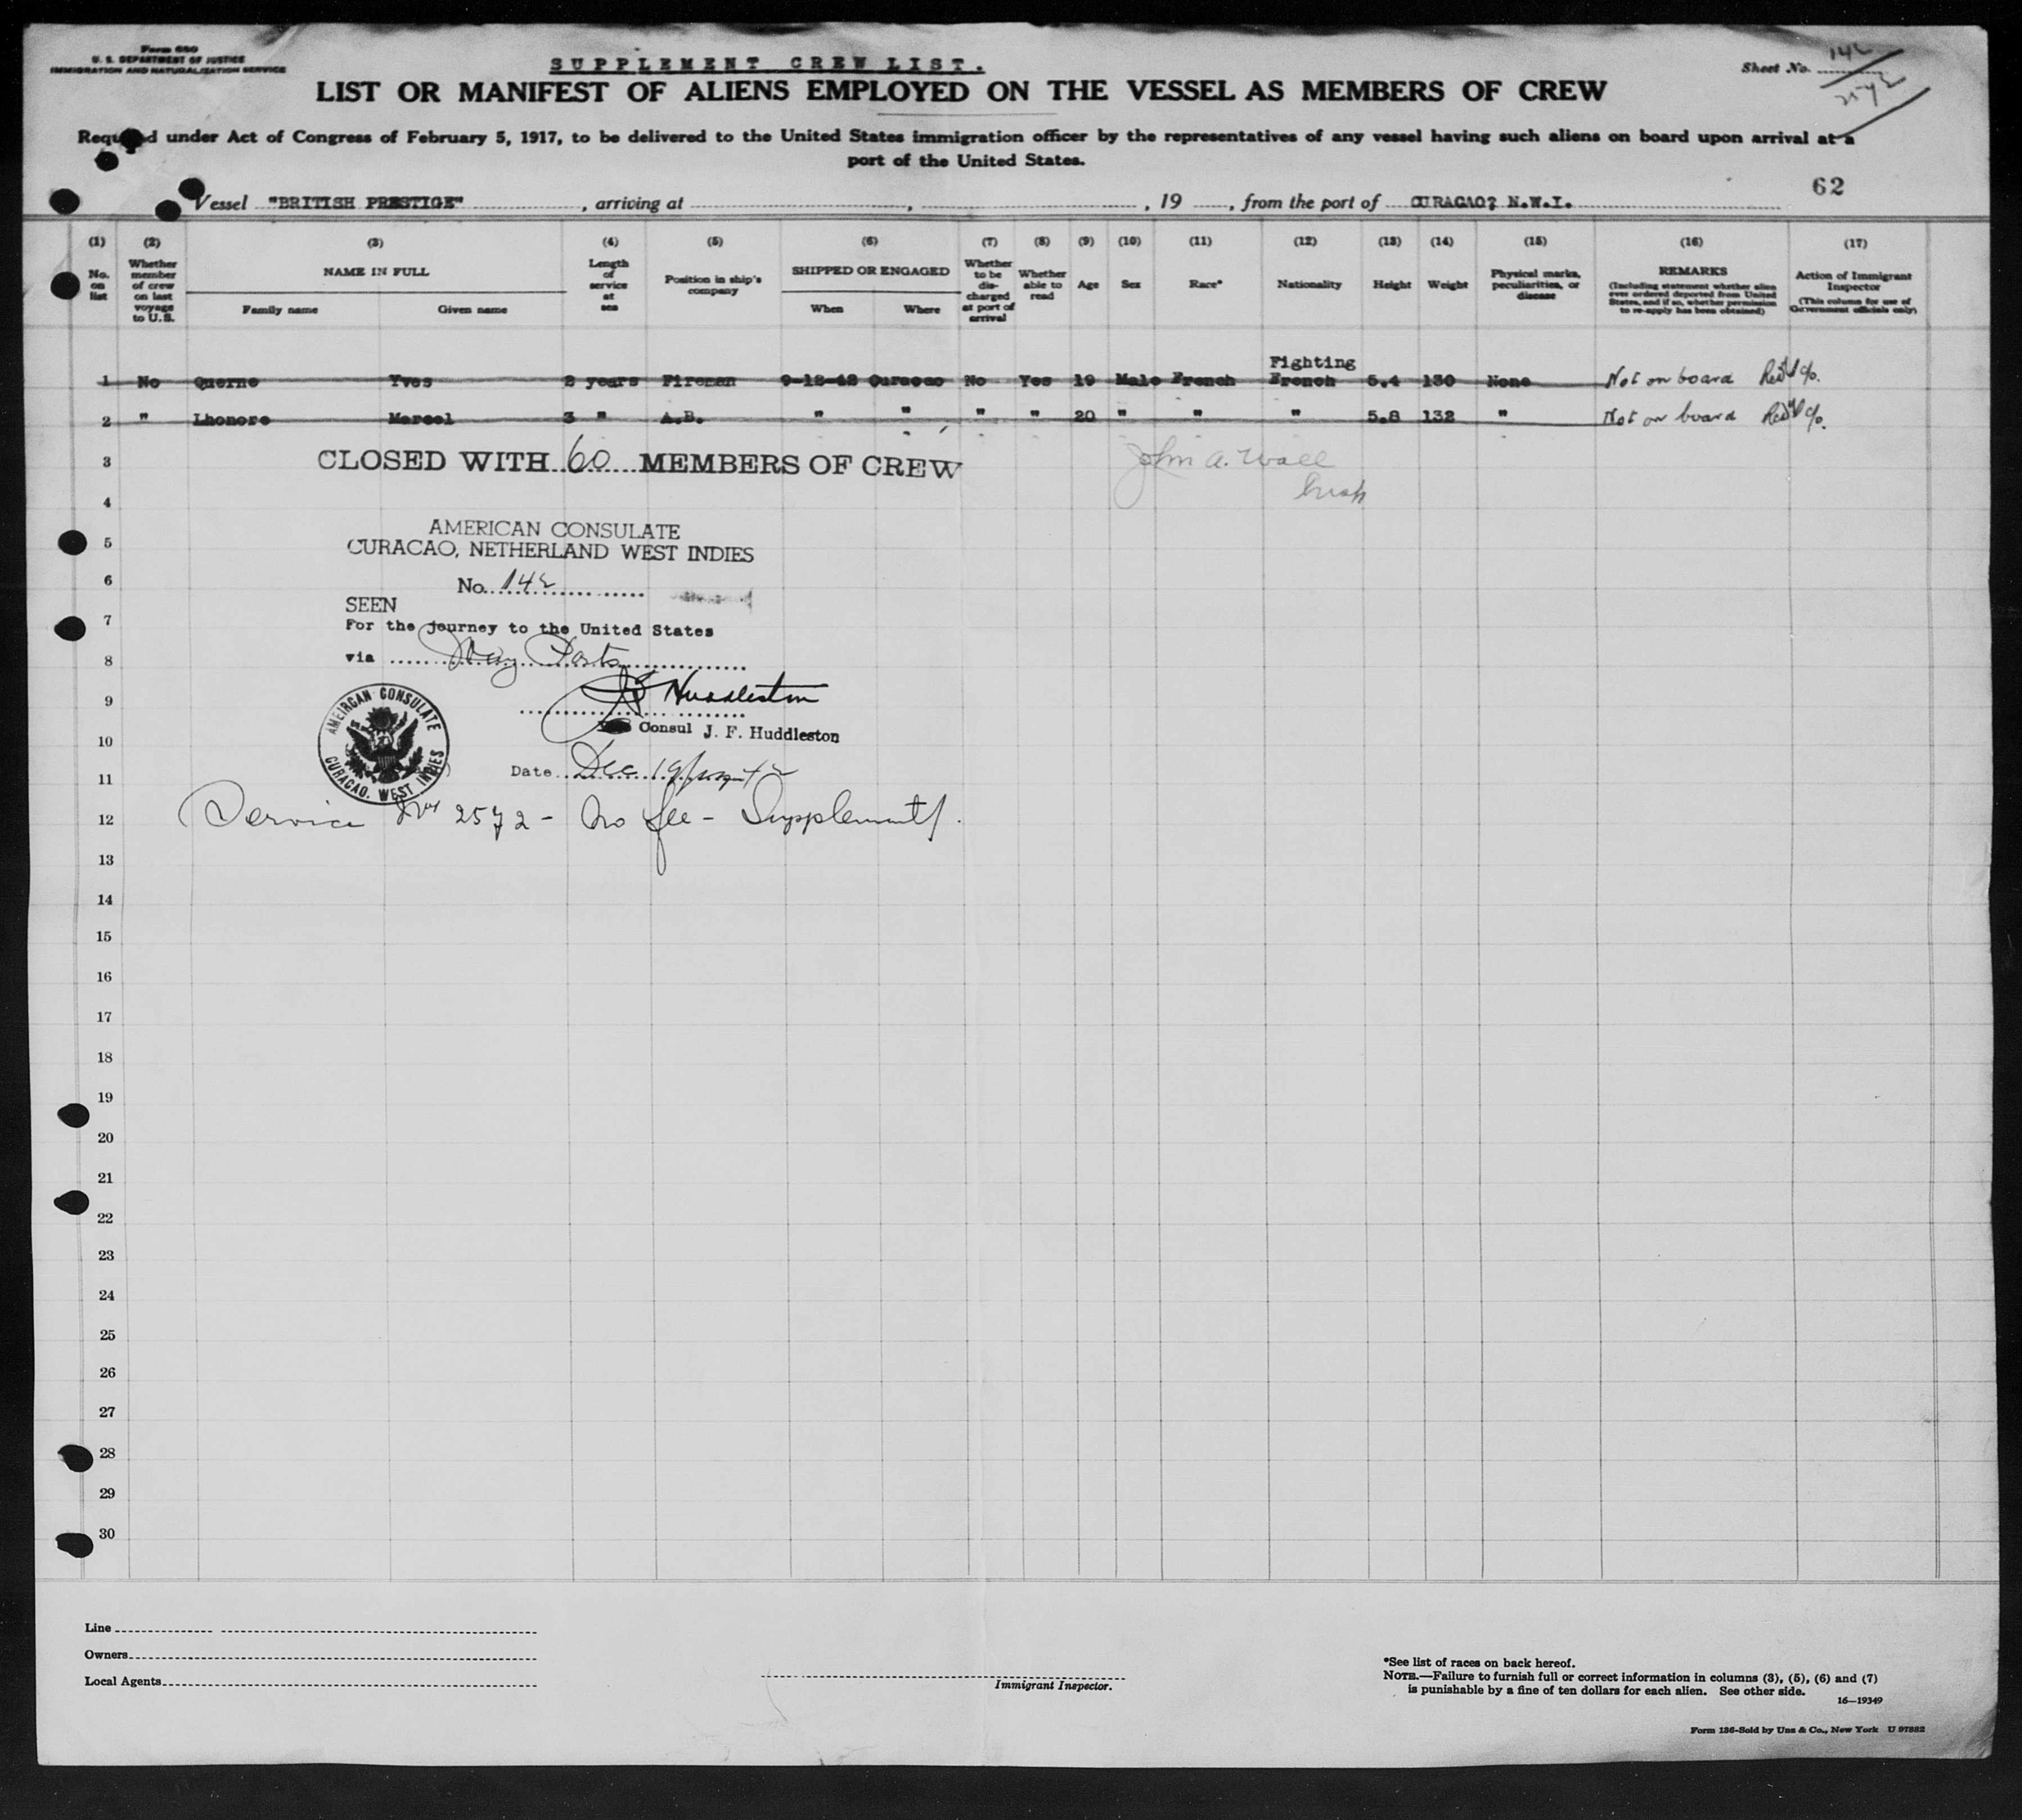 Form 680
U. S. DEPARTMENT OF JUSTICE
IMMIGRATION AND NATURALIZATION SERVICE
SUPPLEMENT CREW LIST.
Sheet No. 142
2572
LIST OR MANIFEST OF ALIENS EMPLOYED ON THE VESSEL AS MEMBERS OF CREW
Required under Act of Congress of February 5, 1917, to be delivered to the United States immigration officer by the representatives of any vessel having such aliens on board upon arrival at a
port of the United States.
62
Vessel "BRITISH PRESTIGE", arriving at , , 19 , from the port of CURACAO? N.W.I.
(1) (2) (3) (4) (5) (6) (7) (8) (9) (10) (11) (12) (13) (14) (15) (16) (17)
No. on list
Whether member of crew on last voyage to U.S.
NAME IN FULL
Family name Given name
Length of service at sea
Position in ship's company
SHIPPED OR ENGAGED
When Where
Whether to be discharged at port of arrival
Whether able to read
Age
Sex
Race*
Nationality
Height
Weight
Physical marks, peculiarities, or disease
REMARKS
(Including statement whether alien ever ordered deported from United States, and if so, whether permission to re-apply has been obtained)
Action of Immigrant Inspector
(This column for use of Government officials only)
Fighting
1 No Querne Yves 2 years Fireman 9-12-42 Curacao No Yes 19 Male French French 5.4 130 None Not on board
2 " Lhonore Marcel 3 " A.B. " " " " 20 " " " 5.8 132 " Not on board
3 CLOSED WITH 60 MEMBERS OF CREW John A. Wall
Irish
4
AMERICAN CONSULATE
5
CURACAO, NETHERLAND WEST INDIES
6 No. 142
SEEN
7 For the journey to the United States
8 via Way Ports
9 J F Huddleston
Consul J. F. Huddleston
10
11 Date Dec 19
AMEIRCAN CONSULATE
CURACAO, WEST INDIES
12 Service No 2572 - No fee - Supplement.
13
14
15
16
17
18
19
20
21
22
23
24
25
26
27
28
29
30
Line
Owners
Local Agents
Immigrant Inspector.
*See list of races on back hereof.
NOTE.—Failure to furnish full or correct information in columns (3), (5), (6) and (7)
is punishable by a fine of ten dollars for each alien. See other side.
16—19349
Form 186-Sold by Unz & Co., New York U 97882